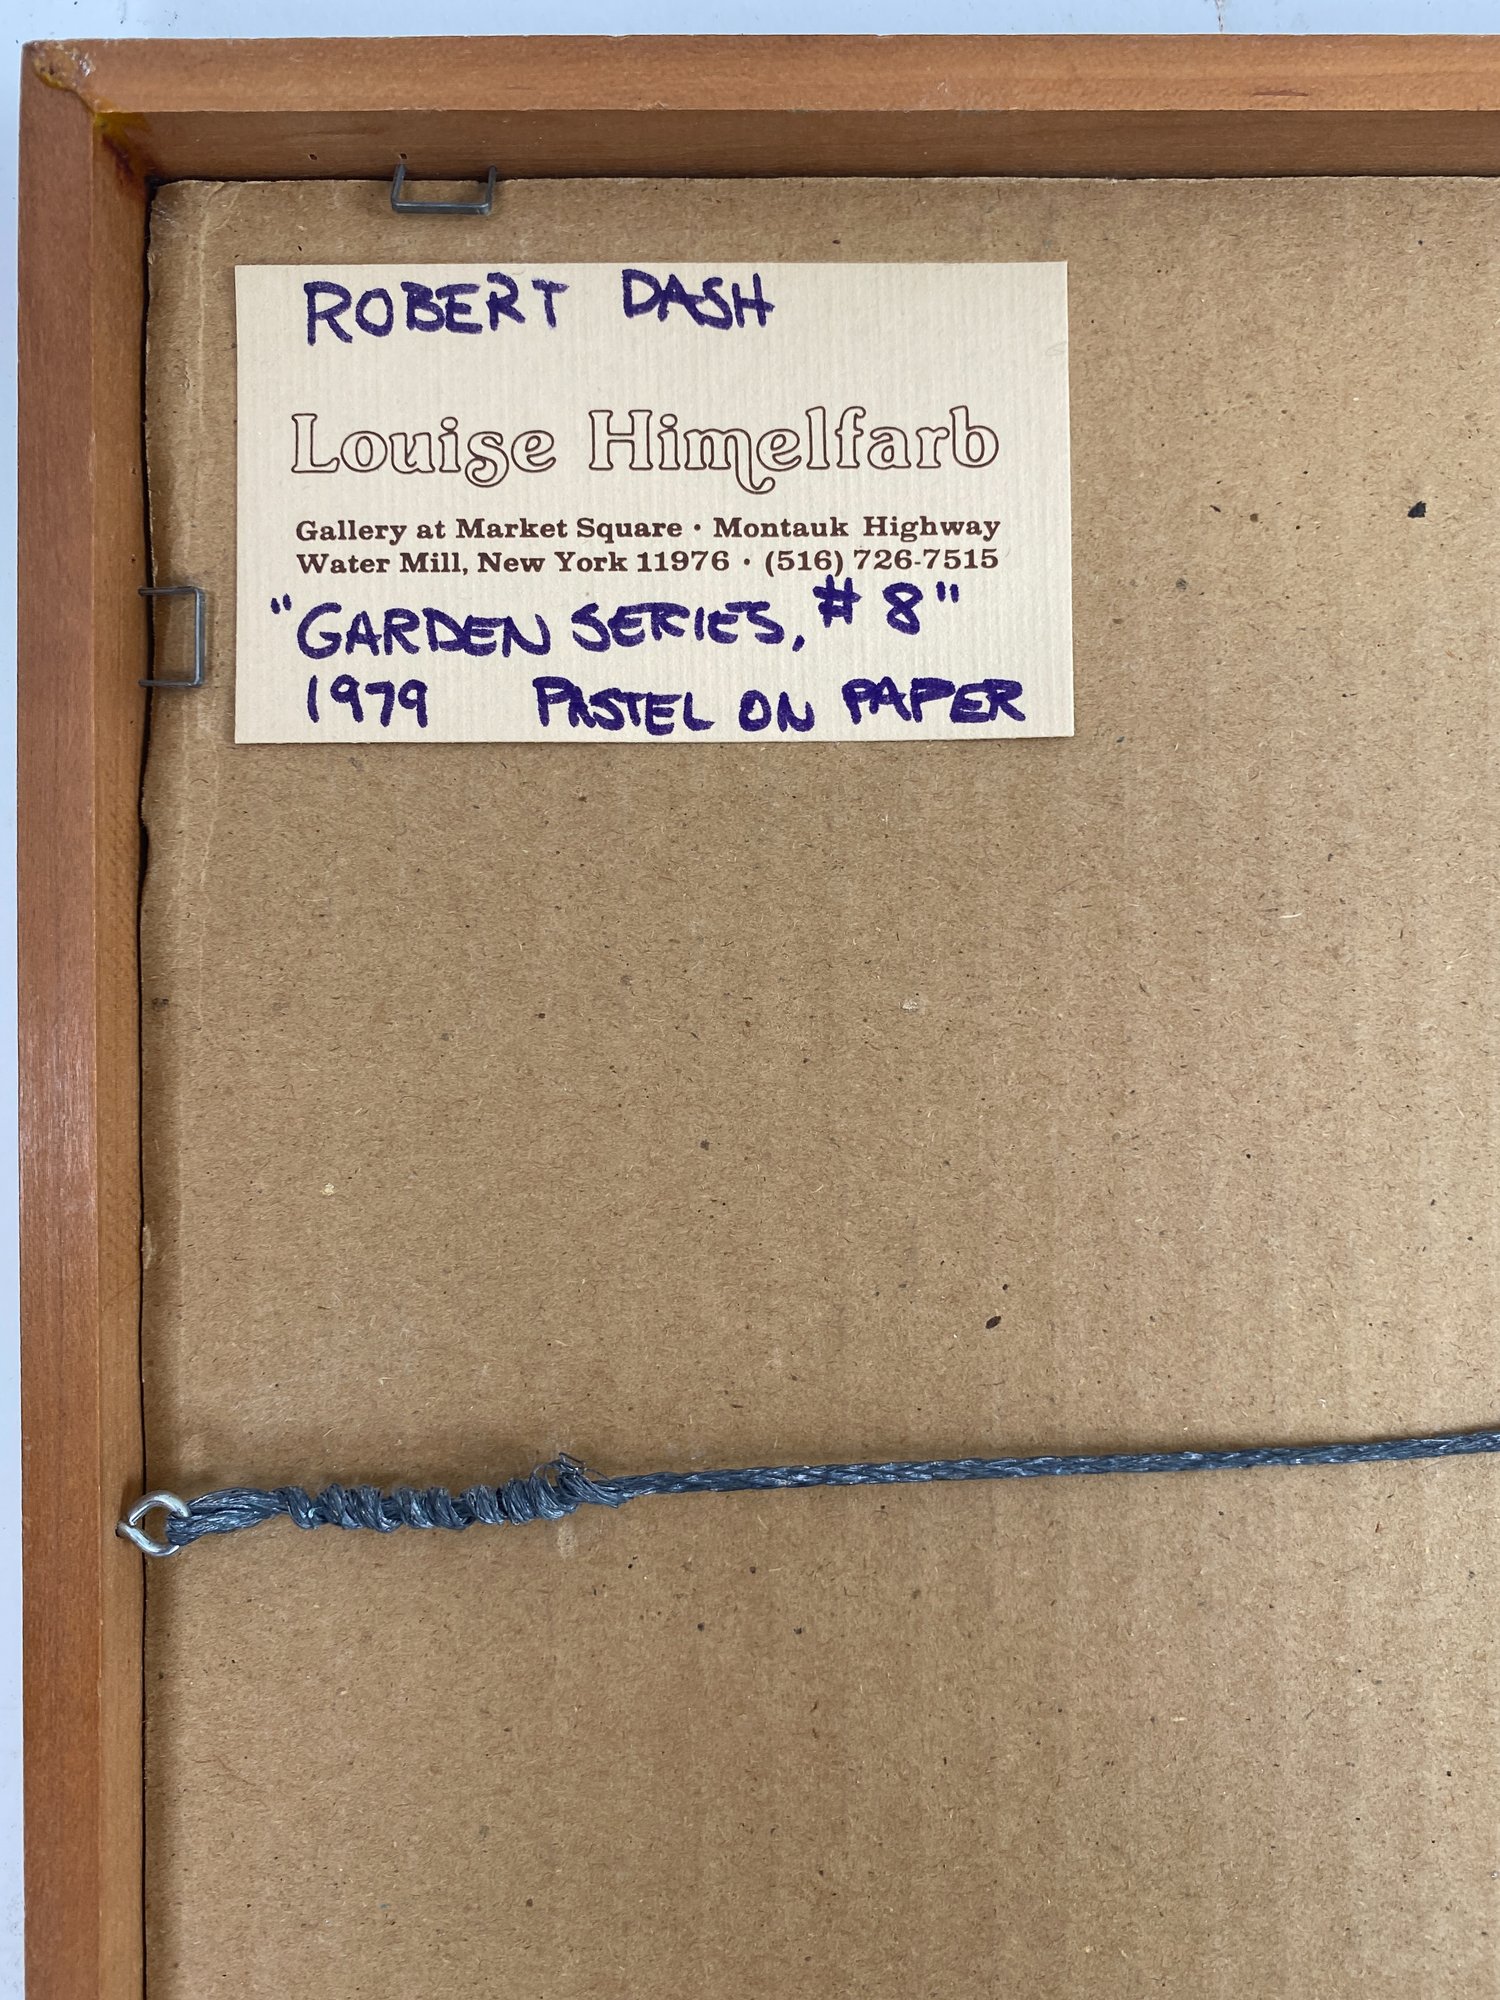 ROBERT DASH
Louise Himelfarb
Gallery at Market Square • Montauk Highway
Water Mill, New York 11976 • (516) 726-7515
"GARDEN SERIES, #8"
1979 PASTEL ON PAPER